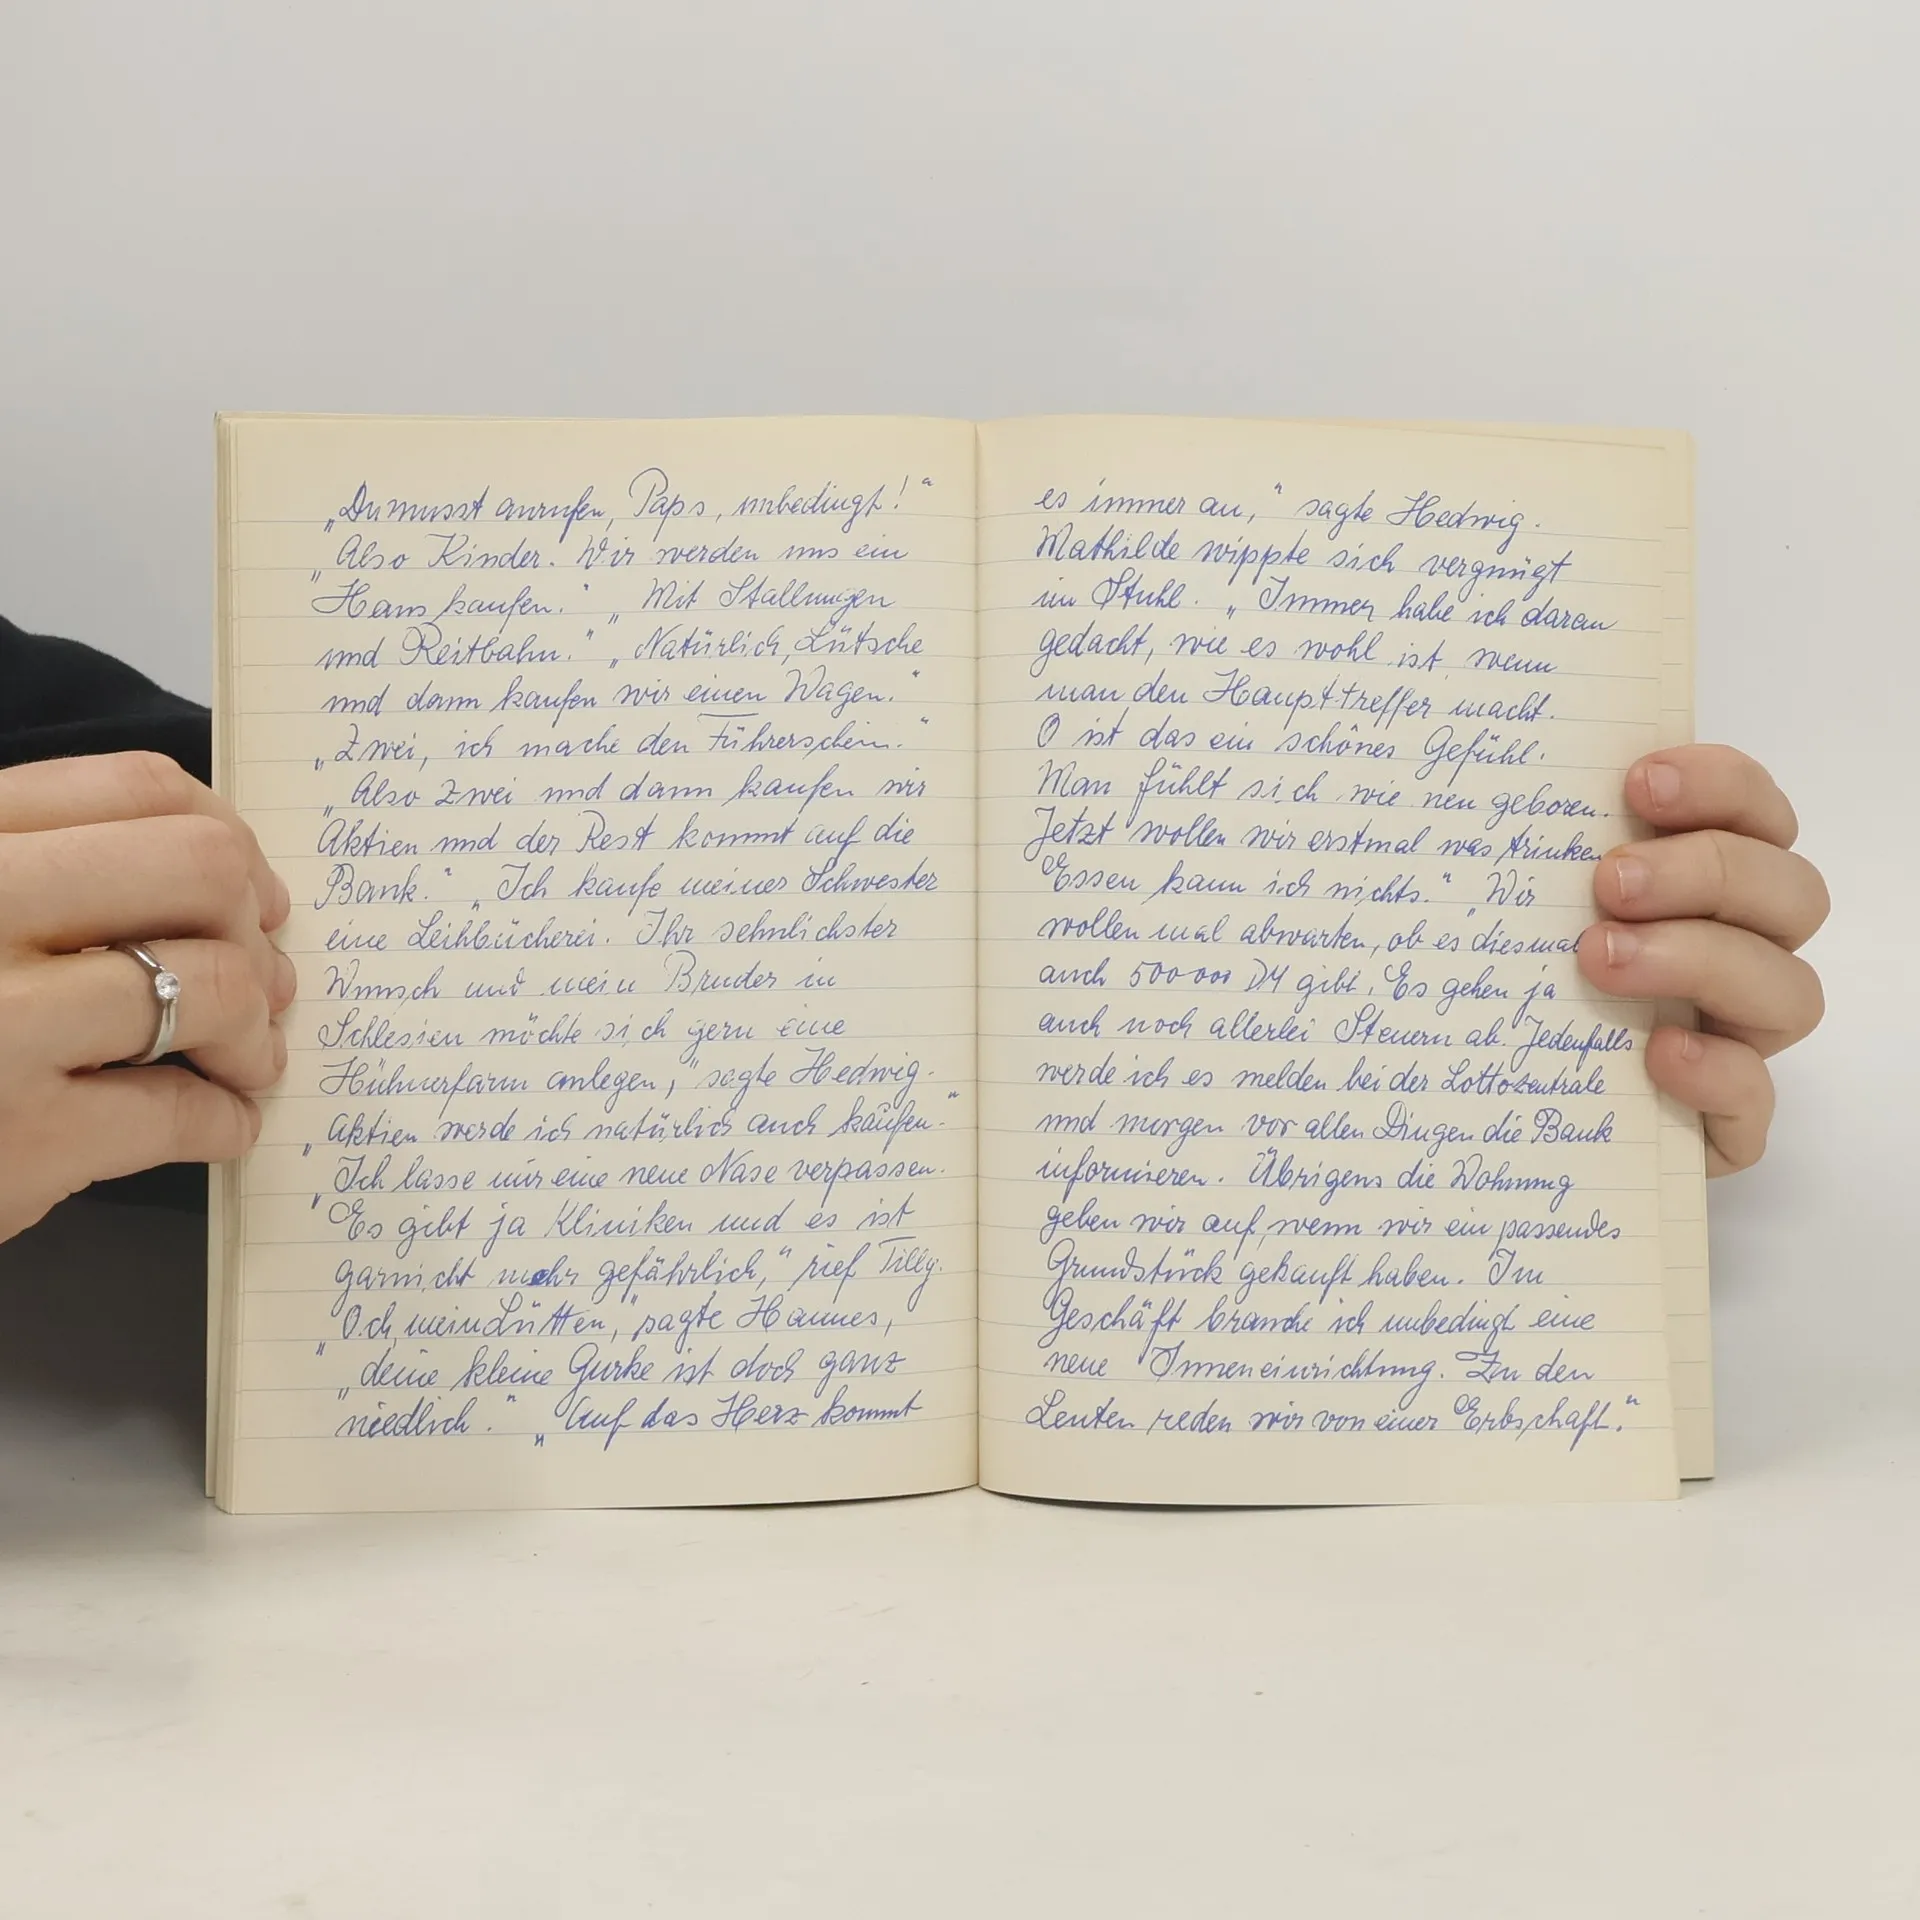 „Du musst anrufen, Paps, unbedingt!“
„Also Kinder. Wir werden uns ein
Haus kaufen.“ „Mit Stallungen
und Reitbahn.“ „Natürlich, Lütsche
und dann kaufen wir einen Wagen.“
„Zwei, ich mache den Führerschein.“
„Also zwei und dann kaufen wir
Aktien und der Rest kommt auf die
Bank.“ „Ich kaufe meiner Schwester
eine Leihbücherei. Ihr sehnlichster
Wunsch und mein Bruder in
Schlesien möchte sich gern eine
Hühnerfarm anlegen,“ sagte Hedwig.
„Aktien werde ich natürlich auch kaufen.“
„Ich lasse mir eine neue Nase verpassen.
Es gibt ja Kliniken und es ist
garnicht mehr gefährlich,“ rief Tilly.
„Och, mein Lütten,“ sagte Hannes,
„deine kleine Gurke ist doch ganz
niedlich.“ „Auf das Herz kommt
es immer an,“ sagte Hedwig.
Mathilde wippte sich vergnügt
im Stuhl. „Immer habe ich daran
gedacht, wie es wohl ist, wenn
man den Haupttreffer macht.
O ist das ein schönes Gefühl.
Man fühlt sich wie neu geboren.
Jetzt wollen wir erstmal was trinken
Essen kann ich nichts.“ „Wir
wollen mal abwarten, ob es diesmal
auch 500000 DM gibt. Es gehen ja
auch noch allerlei Steuern ab. Jedenfalls
werde ich es melden bei der Lottozentrale
und morgen vor allen Dingen die Bank
informieren. Übrigens die Wohnung
geben wir auf, wenn wir ein passendes
Grundstück gekauft haben. Im
Geschäft brauche ich unbedingt eine
neue Inneneinrichtung. Zu den
Leuten reden wir von einer Erbschaft.“